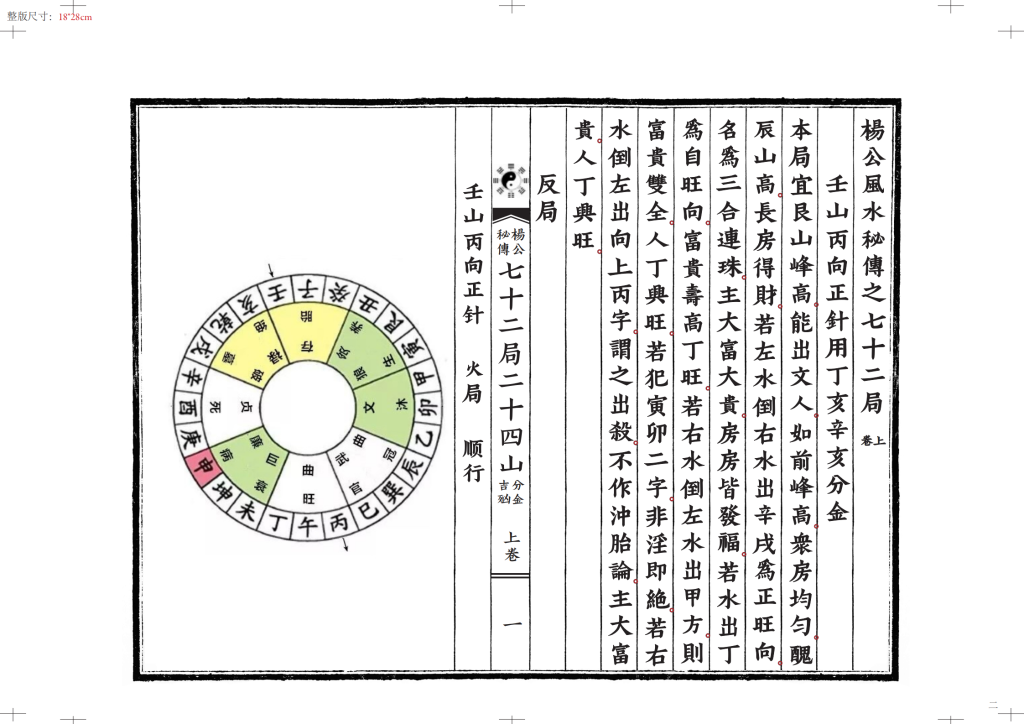 整版尺寸：18*28cm
楊公風水秘傳之七十二局 上卷
壬山丙向正針用丁亥辛亥分金
本局宜艮山峰高。能出文人。如前峰高。衆房均勻。醜
辰山高。長房得財。若左水倒右水出辛戌爲正旺向。
名爲三合連珠。主大富大貴。房房皆發福。若水出丁
爲自旺向。富貴壽高丁旺。若右水倒左水出甲方。則
富貴雙全。人丁興旺。若犯寅卯二字。非淫即絶。若右
水倒左出向上丙字。謂之出殺。不作沖胎論。主大富
貴。人丁興旺。
反局
楊公秘傳
七十二局二十四山
分金吉凶
上卷
一
壬山丙向正针 火局 顺行
壬子癸丑艮寅甲卯乙辰巽巳丙午丁未坤申庚酉辛戌乾亥
胎 养 生 沐 冠 官 旺 衰 病 死 墓 绝
存 贪 狼 文 曲 武 曲 巨 廉 贞 破 禄
二